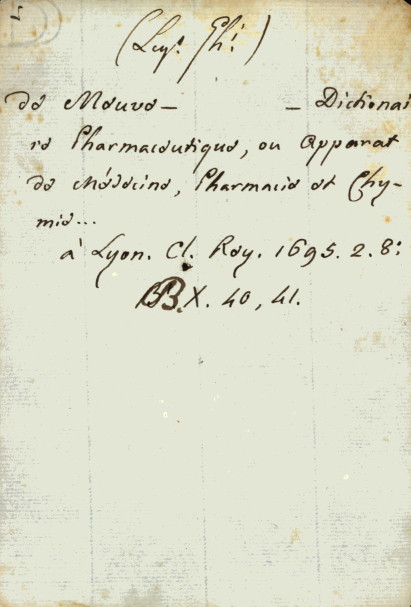 de Meuve – – Dictionai
re Pharmaceutique, ou Apparat
de Médecine, Pharmacie et Chy-
mie...
à Lyon. Cl. Rey. 1695. 2. 8:
BB.X. 40, 41.